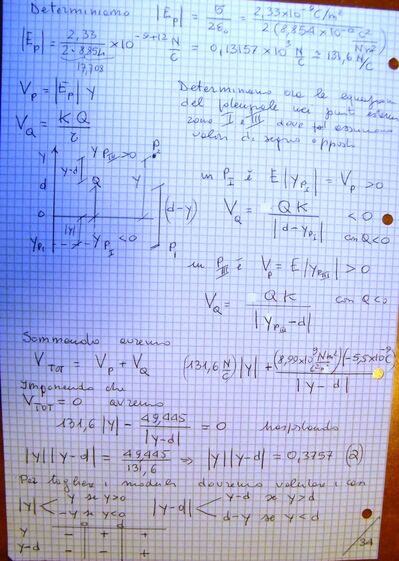 Determiniamo |E_p| = σ/2ε₀ = 2,33×10⁻⁹ C/m² / 2(8,854 ×10⁻¹² C²/Nm²)
|E_p| = 2,33/2·8,854 ×10⁻⁹⁺¹² N/C = 0,13157 ×10³ N/C ≅ 131,6 N/C
17,708
V_P = |E_p| y
Determiniamo ora le equazioni
del potenziale nei punti esterni
zone I e III dove assumono
valori di segno opposto
V_Q = KQ/r
y y P_III >0 P_III
y-d
d Q y
in P_I è E|y_PI| = V_P >0
0 (d-y)
V_Q = QK/|d-y_PI| <0
con Q<0
|y|
y_PI y_PI <0 P_I
in P_III è V_P = E|y_PIII| >0
V_Q = QK/|y_PIII-d| con Q<0
Sommando avremo
V_TOT = V_P + V_Q (131,6 N/C)|y| + (8,99×10⁹ Nm²/C²)(-5,5×10⁻⁹C)/|y-d|
Imponendo che
V_TOT = 0 avremo
131,6 |y| - 49,445/|y-d| = 0
|y||y-d| = 49,445/131,6 ⇒ |y||y-d| = 0,3757 (2)
Per togliere i moduli dovremo valutare i casi
|y| < y se y>0 |y-d| < y-d se y>d
-y se y<0 d-y se y<d
0 d
y - + +
y-d - - +
34